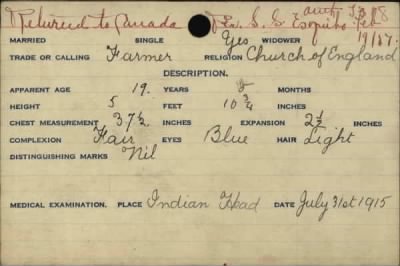 Returned to Canada Per S. S. Esquibo Feb
19/17.
MARRIED SINGLE Yes WIDOWER
TRADE OR CALLING Farmer RELIGION Church of England
DESCRIPTION.
APPARENT AGE 19. YEARS MONTHS
HEIGHT 5 FEET 10 3/4 INCHES
CHEST MEASUREMENT 37 1/2 INCHES EXPANSION 2 1/2 INCHES
COMPLEXION Fair EYES Blue HAIR Light
DISTINGUISHING MARKS Nil
MEDICAL EXAMINATION. PLACE Indian Head DATE July 31st 1915